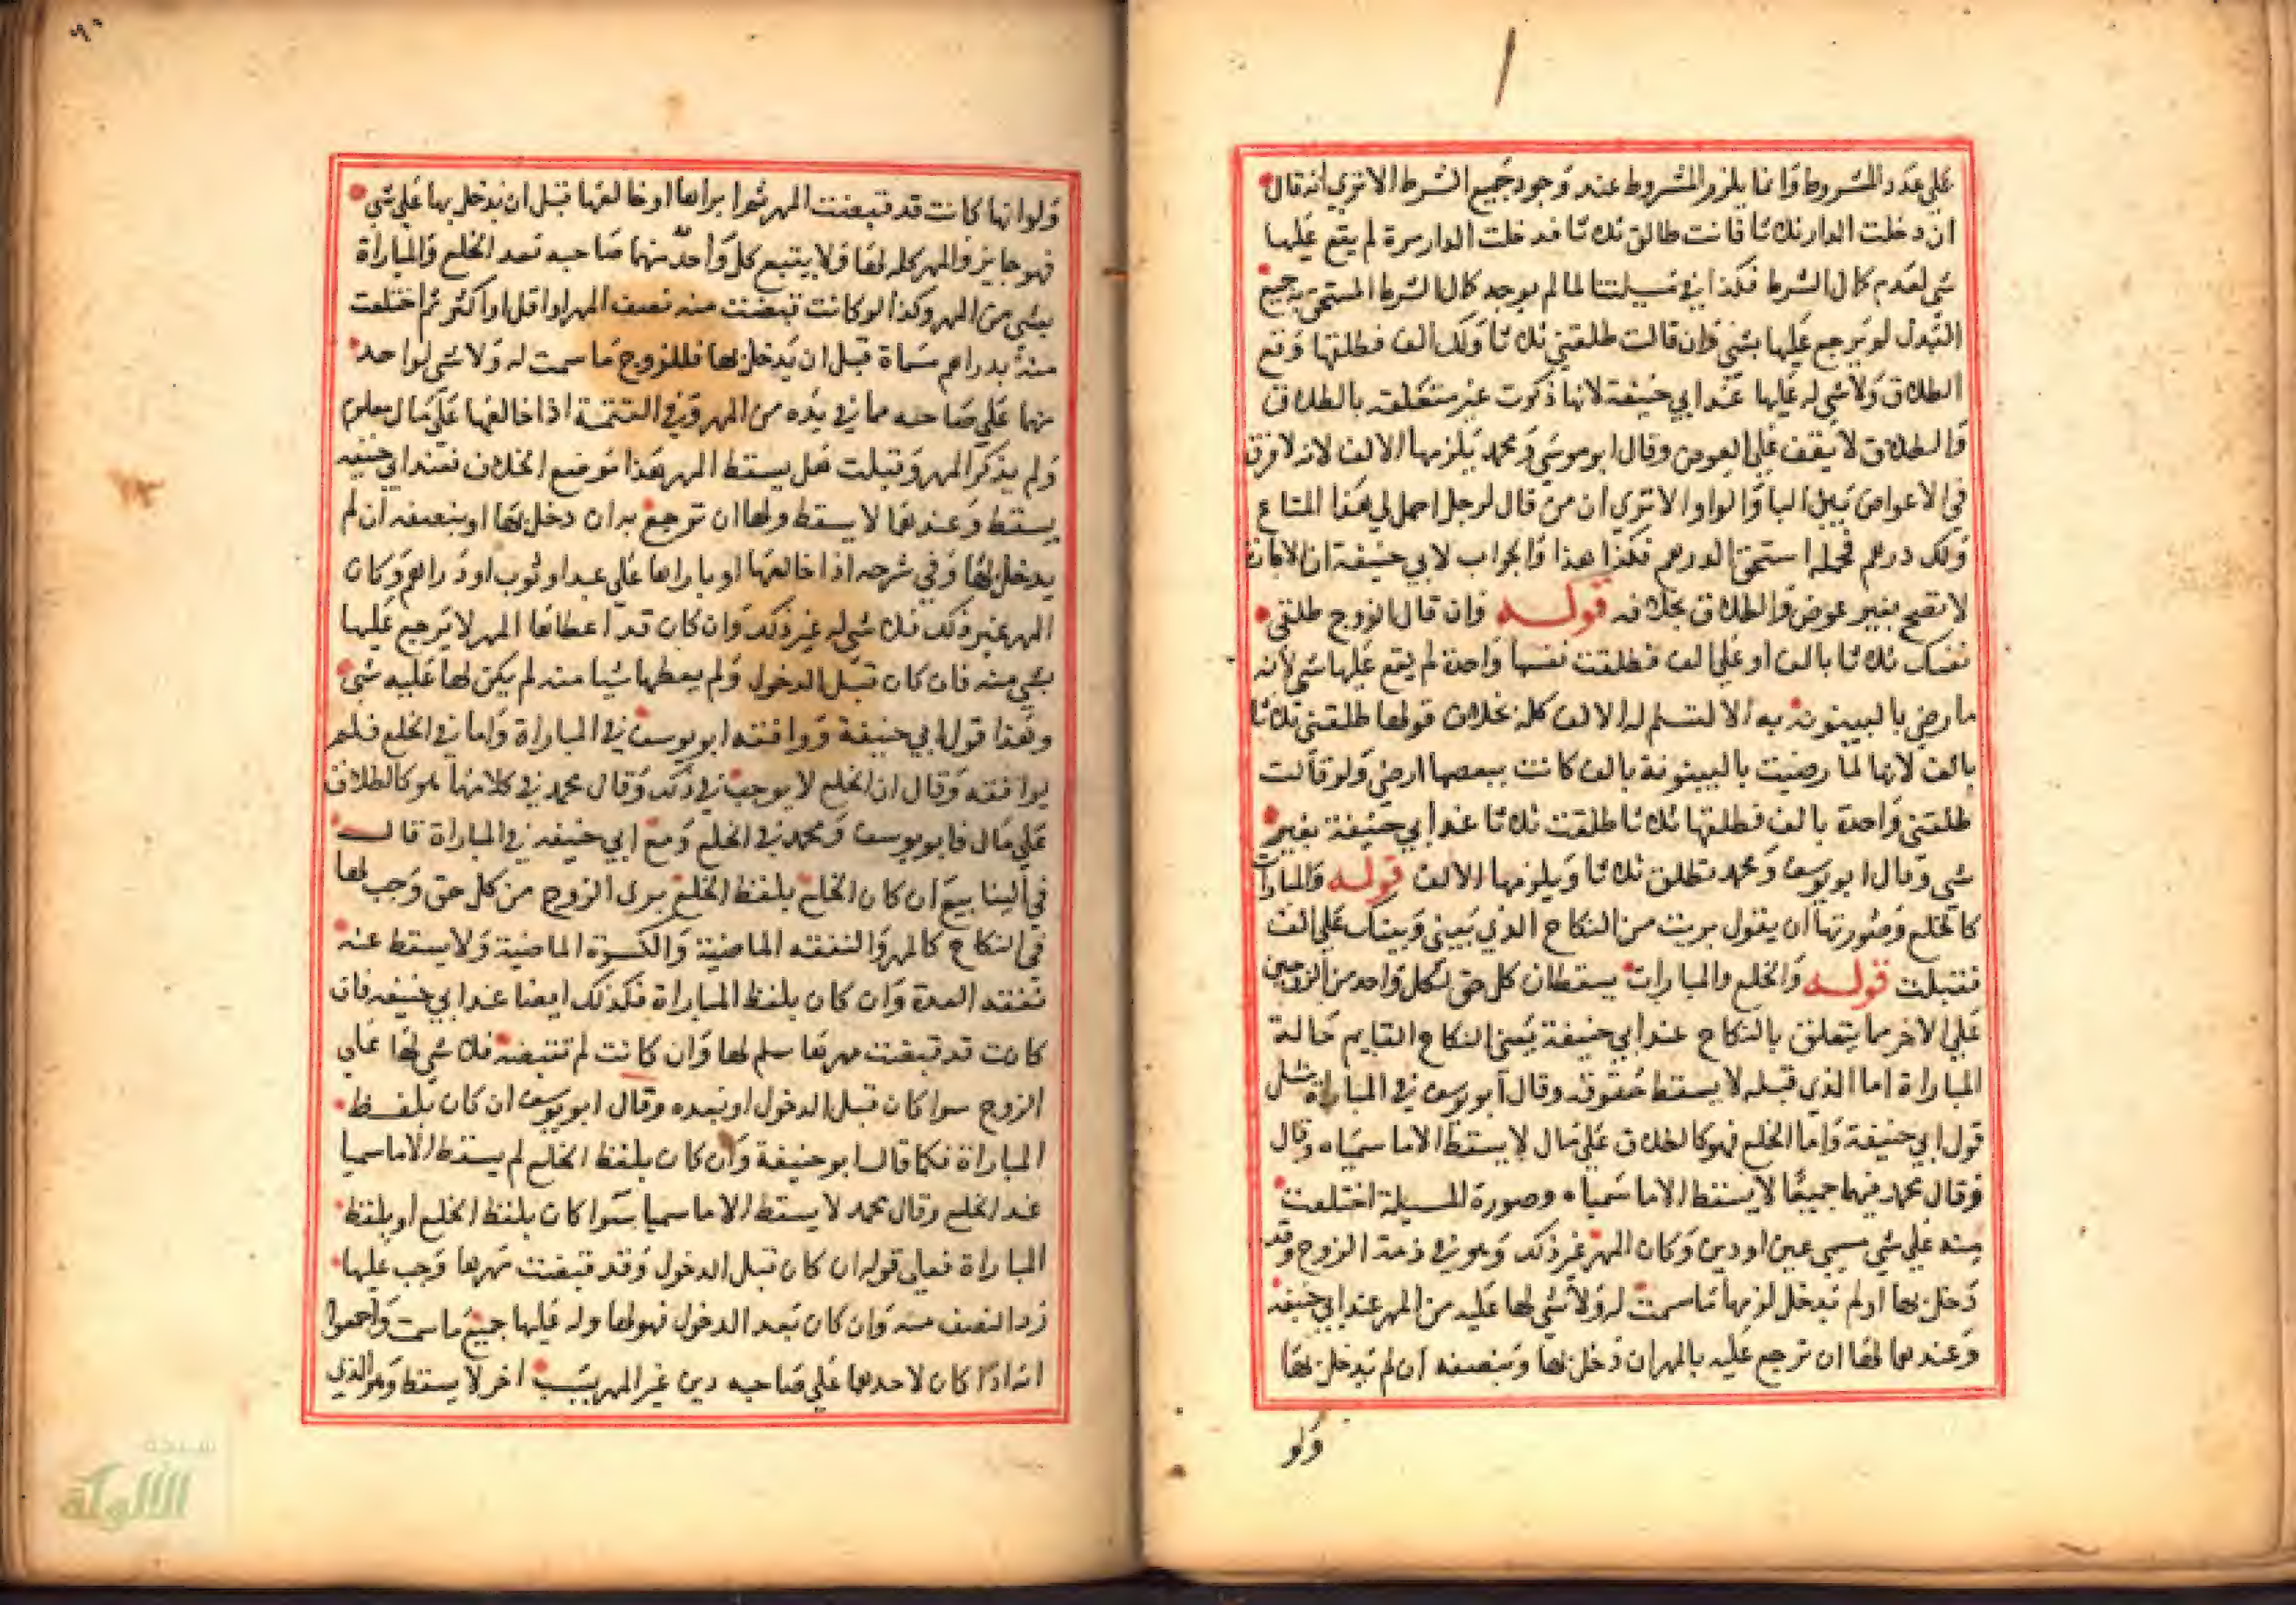 علي عدد المشروط وانما يلزم المشروط عند وجود جميع الشرط الا تري انه قال
ان دخلت الدار ثلاثا فانت طالق ثلاثا فدخلت الدار مرة لم يقع عليها
شي لعدم كمال الشرط فكذا في مسيلتنا لما لم يوجد كمال الشرط المستحق به جميع
البدل لم يرجع عليها بشي وان قالت طلقني ثلاثا ولك الف فطلقها وقع
الطلاق ولا شي له عليها عند ابي حنيفة لانها ذكرت غير متعلقه بالطلاق
والطلاق لا يقف علي العوض وقال ابو موسي ومحمد يلزمها الالف لانه لا فرق
في الاعواض بين البا والواو الا تري ان من قال لرجل احمل لي هذا المتاع
ولك درهم فحمله استحق الدرهم فكذا هذا والجواب لابي حنيفة ان الاجارة
لا تصح بغير عوض والطلاق بخلافه قوله وان قال الزوج طلقي
نفسك ثلاثا بالف او علي الف فطلقت نفسها واحدة لم يقع عليها شي لانه
ما رضي بالبينونة به الا لتسلم له الالف كله بخلاف قولها طلقني ثلاثا
بالف لانها لما رضيت بالبينونة بالف كانت ببعضها ارضي ولو قالت
طلقني واحدة بالف فطلقها ثلاثا طلقت ثلاثا عند ابي حنيفة بغير
شي وقال ابو يوسف ومحمد تطلق ثلاثا ويلزمها الالف قوله والمبارات
كالخلع وصورتها ان يقول بريت من النكاح الذي بيني وبينك علي الف
فقبلت قوله والخلع والمبارات يسقطان كل حق لكل واحد من الزوجين
علي الاخر مما يتعلق بالنكاح عند ابي حنيفة يعني النكاح القايم حالة
المباراة اما الذي قبله لا يسقط حقوقه وقال ابو يوسف في المباراة مثل
قول ابي حنيفة واما الخلع فهو كالطلاق علي مال لا يسقط الا ما سمياه وقال
وقال محمد فيهما جميعا لا يسقط الا ما سمياه وصورة المسيلة اختلعت
منه علي شي مسمي عين او دين وكان المهر غير ذلك وهو في ذمة الزوج وقد
دخل بها او لم يدخل لزمها ما سمت له ولا شي لها عليه من المهر عند ابي حنيفه
وعندهما لها ان ترجع عليه بالمهر ان دخل بها وبنصفه ان لم يدخل بها
ولو
ولو انها كانت قد قبضت المهر ثم بارأها او خالعها قبل ان يدخل بها علي شي
فهو جايز والمهر كله لها ولا يتبع كل واحد منهما صاحبه بعد الخلع والمباراة
بشي من المهر وكذا لو كانت قبضت منه نصف المهر او اقل او اكثر ثم اختلعت
منه بدراهم مسماة قبل ان يدخل بها فللزوج ما سمت له ولا شي لواحد
منهما علي صاحبه مما في يده من المهر وفي التتمة اذا خالعها علي مال معلوم
ولم يذكر المهر وقبلت هل يسقط المهر هذا موضع الخلاف فعند ابي حنيفه
يسقط وعندهما لا يسقط ولها ان ترجع به ان دخل بها او بنصفه ان لم
يدخل بها وفي شرحه اذا خالعها او باراها علي عبد او ثوب او دراهم وكان
المهر غير ذلك فلا شي له غير ذلك وان كان قد اعطاها المهر لا يرجع عليها
بشي منه فان كان قبل الدخول ولم يعطها شيا منه لم يكن لها عليه شي
وهذا قول ابي حنيفة ووافقه ابو يوسف في المباراة واما في الخلع فلم
يوافقه وقال ان الخلع لا يوجب في ذلك وقال محمد في كلامهما هو كالطلاق
علي مال فابو يوسف ومحمد في الخلع ومع ابي حنيفه في المباراة قال
في الينابيع ان كان الخلع بلفظ الخلع بري الزوج من كل حق وجب لها
في النكاح كالمهر والنفقه الماضية والكسوة الماضية ولا يسقط عنه
نفقة العدة وان كان بلفظ المباراة فكذلك ايضا عند ابي حنيفه فان
كانت قد قبضت مهرها سلم لها وان كانت لم تقبضه فلا شي لها علي
الزوج سوا كان قبل الدخول او بعده وقال ابو يوسف ان كان بلفظ
المباراة فكما قال ابو حنيفة وان كان بلفظ الخلع لم يسقط الا ما سميا
عند الخلع وقال محمد لا يسقط الا ما سميا سوا كان بلفظ الخلع او بلفظ
المباراة فعلي قوله ان كان قبل الدخول وقد قبضت مهرها وجب عليها
رد النصف منه وان كان بعد الدخول فهو لها وله عليها جميع ما سمت واجمعوا
انه اذا كان لاحدهما علي صاحبه دين غير المهر بسبب اخر لا يسقط وهو الذي
شبكة
الألوكة